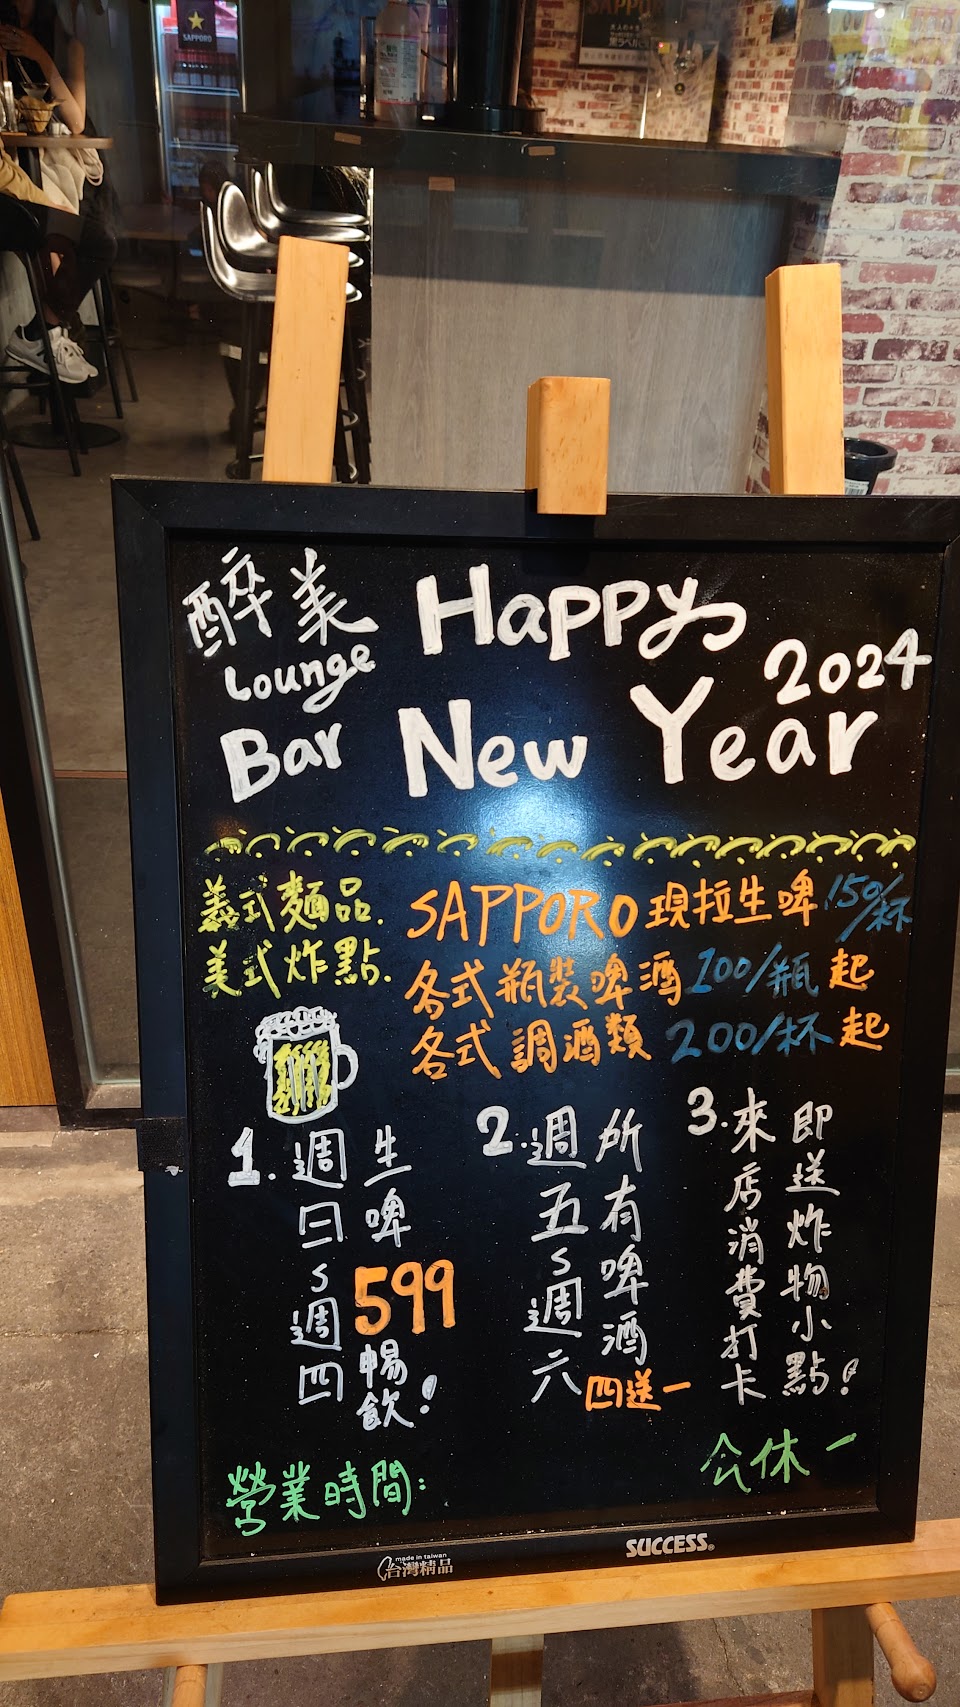 SAPPORO
SAPPORO
醉美
Lounge
Bar
Happy
New Year
2024
義式麵品.
美式炸點.
SAPPORO 現拉生啤 150/杯
各式瓶裝啤酒 100/瓶 起
各式調酒類 200/杯 起
1. 週日~週四
生啤 599 暢飲!
2. 週五~週六
所有啤酒四送一
3. 來店消費打卡
即送炸物小點!
營業時間:
公休一
made in taiwan
台灣精品
SUCCESS®